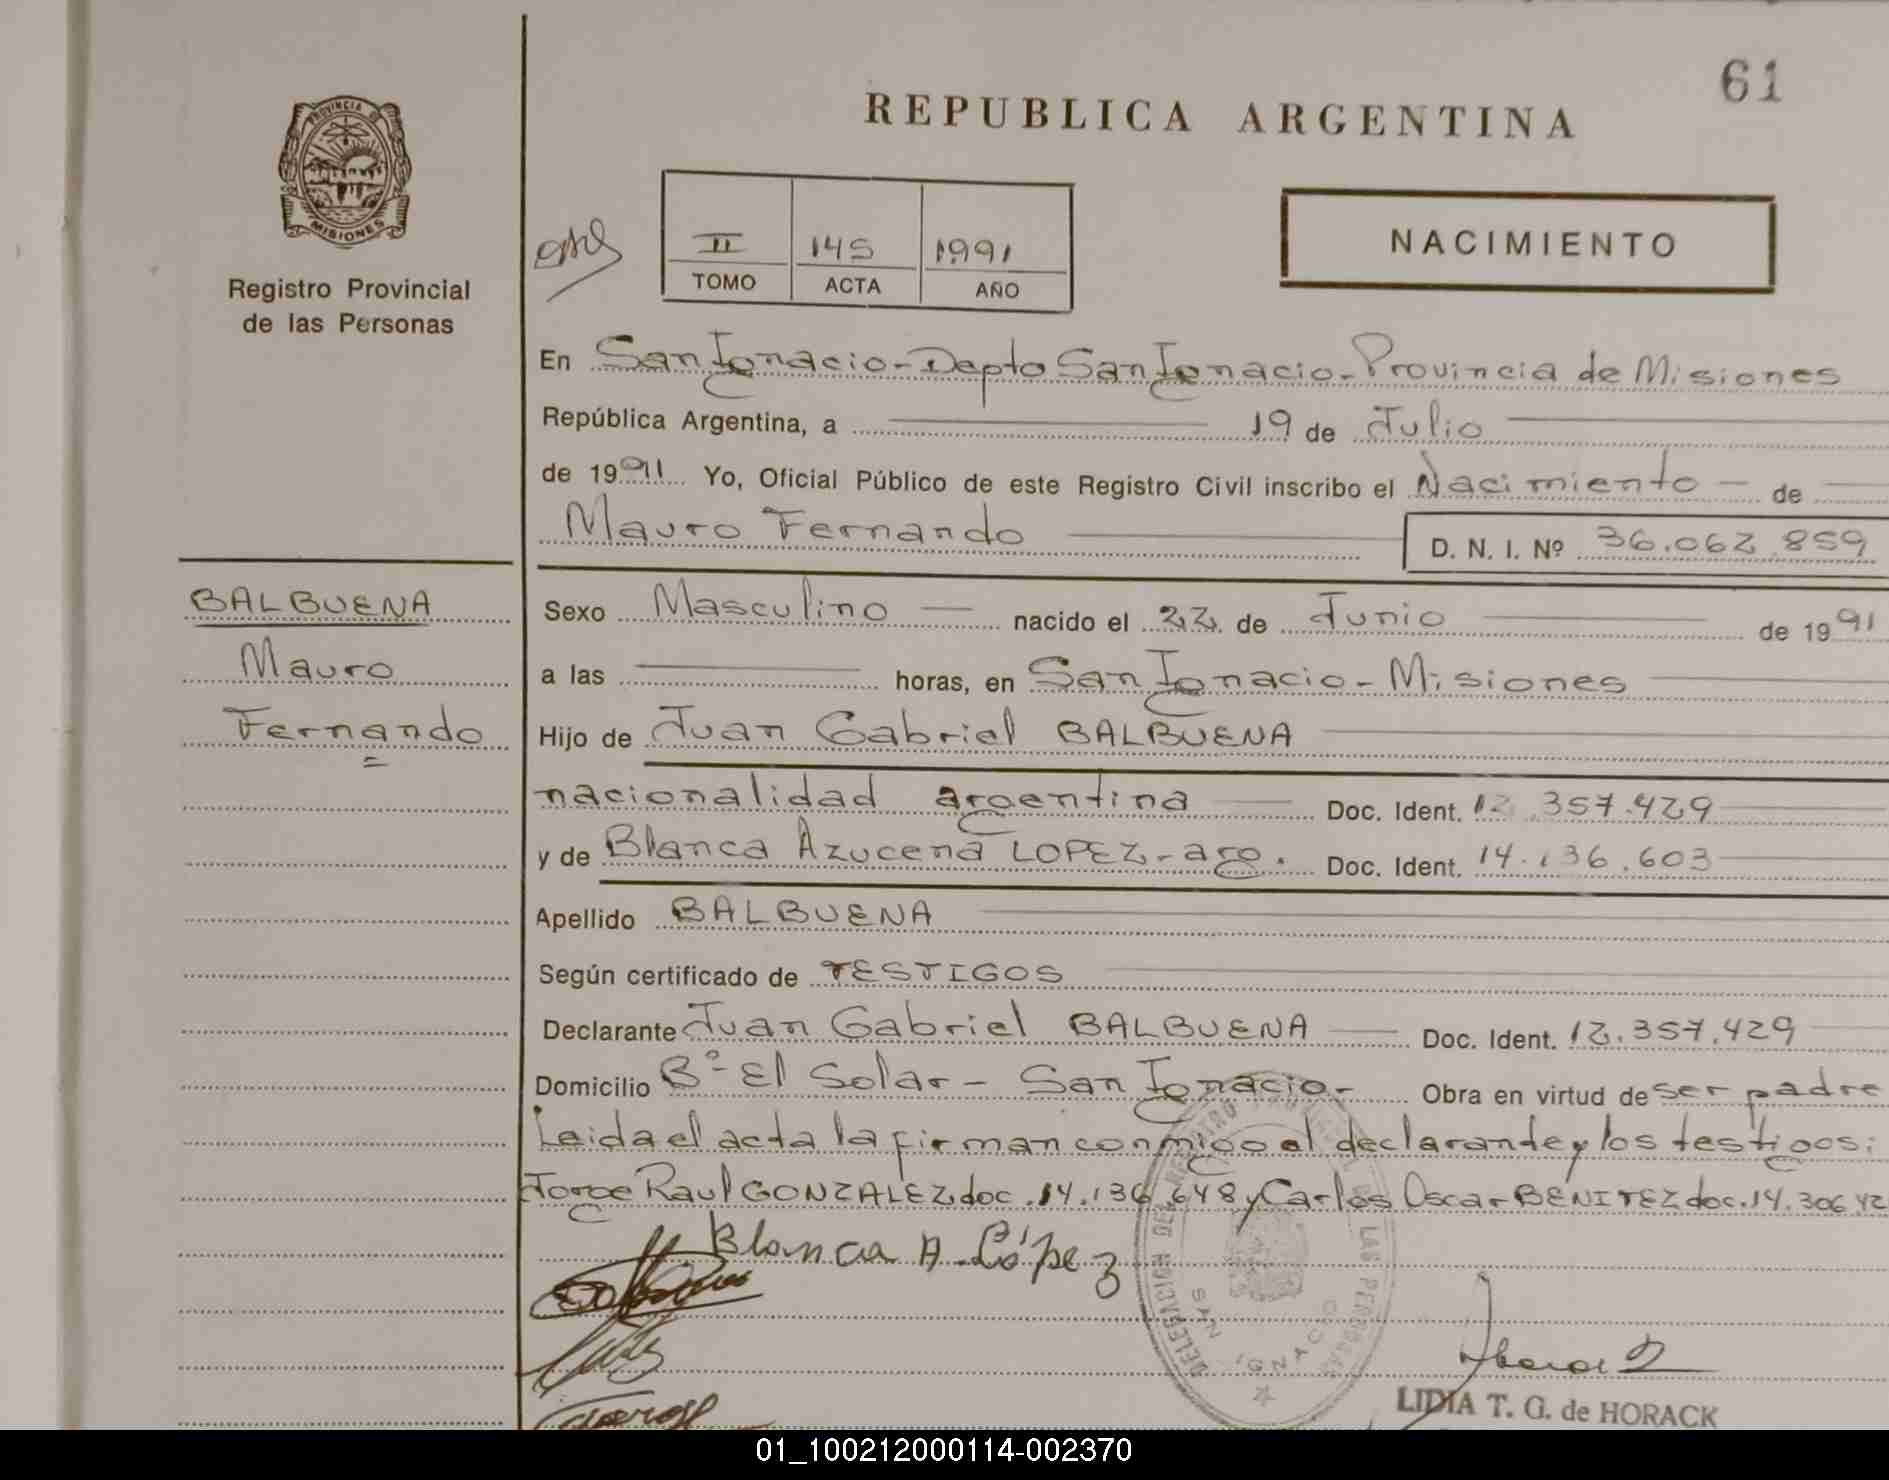 61
REPUBLICA ARGENTINA
PROVINCIA DE
MISIONES
Registro Provincial
de las Personas
II 145 1991
TOMO ACTA AÑO
NACIMIENTO
En San Ignacio - Depto San Ignacio - Provincia de Misiones
República Argentina, a 19 de Julio
de 1991 Yo, Oficial Público de este Registro Civil inscribo el Nacimiento - de
Mauro Fernando D. N. I. Nº 36.062.859
BALBUENA
Mauro
Fernando
Sexo Masculino nacido el 22 de Junio de 1991
a las horas, en San Ignacio - Misiones
Hijo de Juan Gabriel BALBUENA
nacionalidad argentina Doc. Ident. 12.357.429
y de Blanca Azucena LOPEZ - arg. Doc. Ident. 14.136.603
Apellido BALBUENA
Según certificado de TESTIGOS
Declarante Juan Gabriel BALBUENA Doc. Ident. 12.357.429
Domicilio Bº El Solar - San Ignacio - Obra en virtud de ser padre
Leida el acta la firman conmigo el declarante y los testigos:
Jorge Raul GONZALEZ doc. 14.136.648 y Carlos Oscar BENITEZ doc. 14.306.42
Blanca A. López
DELEGACION DEL REGISTRO PROVINCIAL DE LAS PERSONAS
SAN IGNACIO
LIDIA T. G. de HORACK
01_100212000114-002370